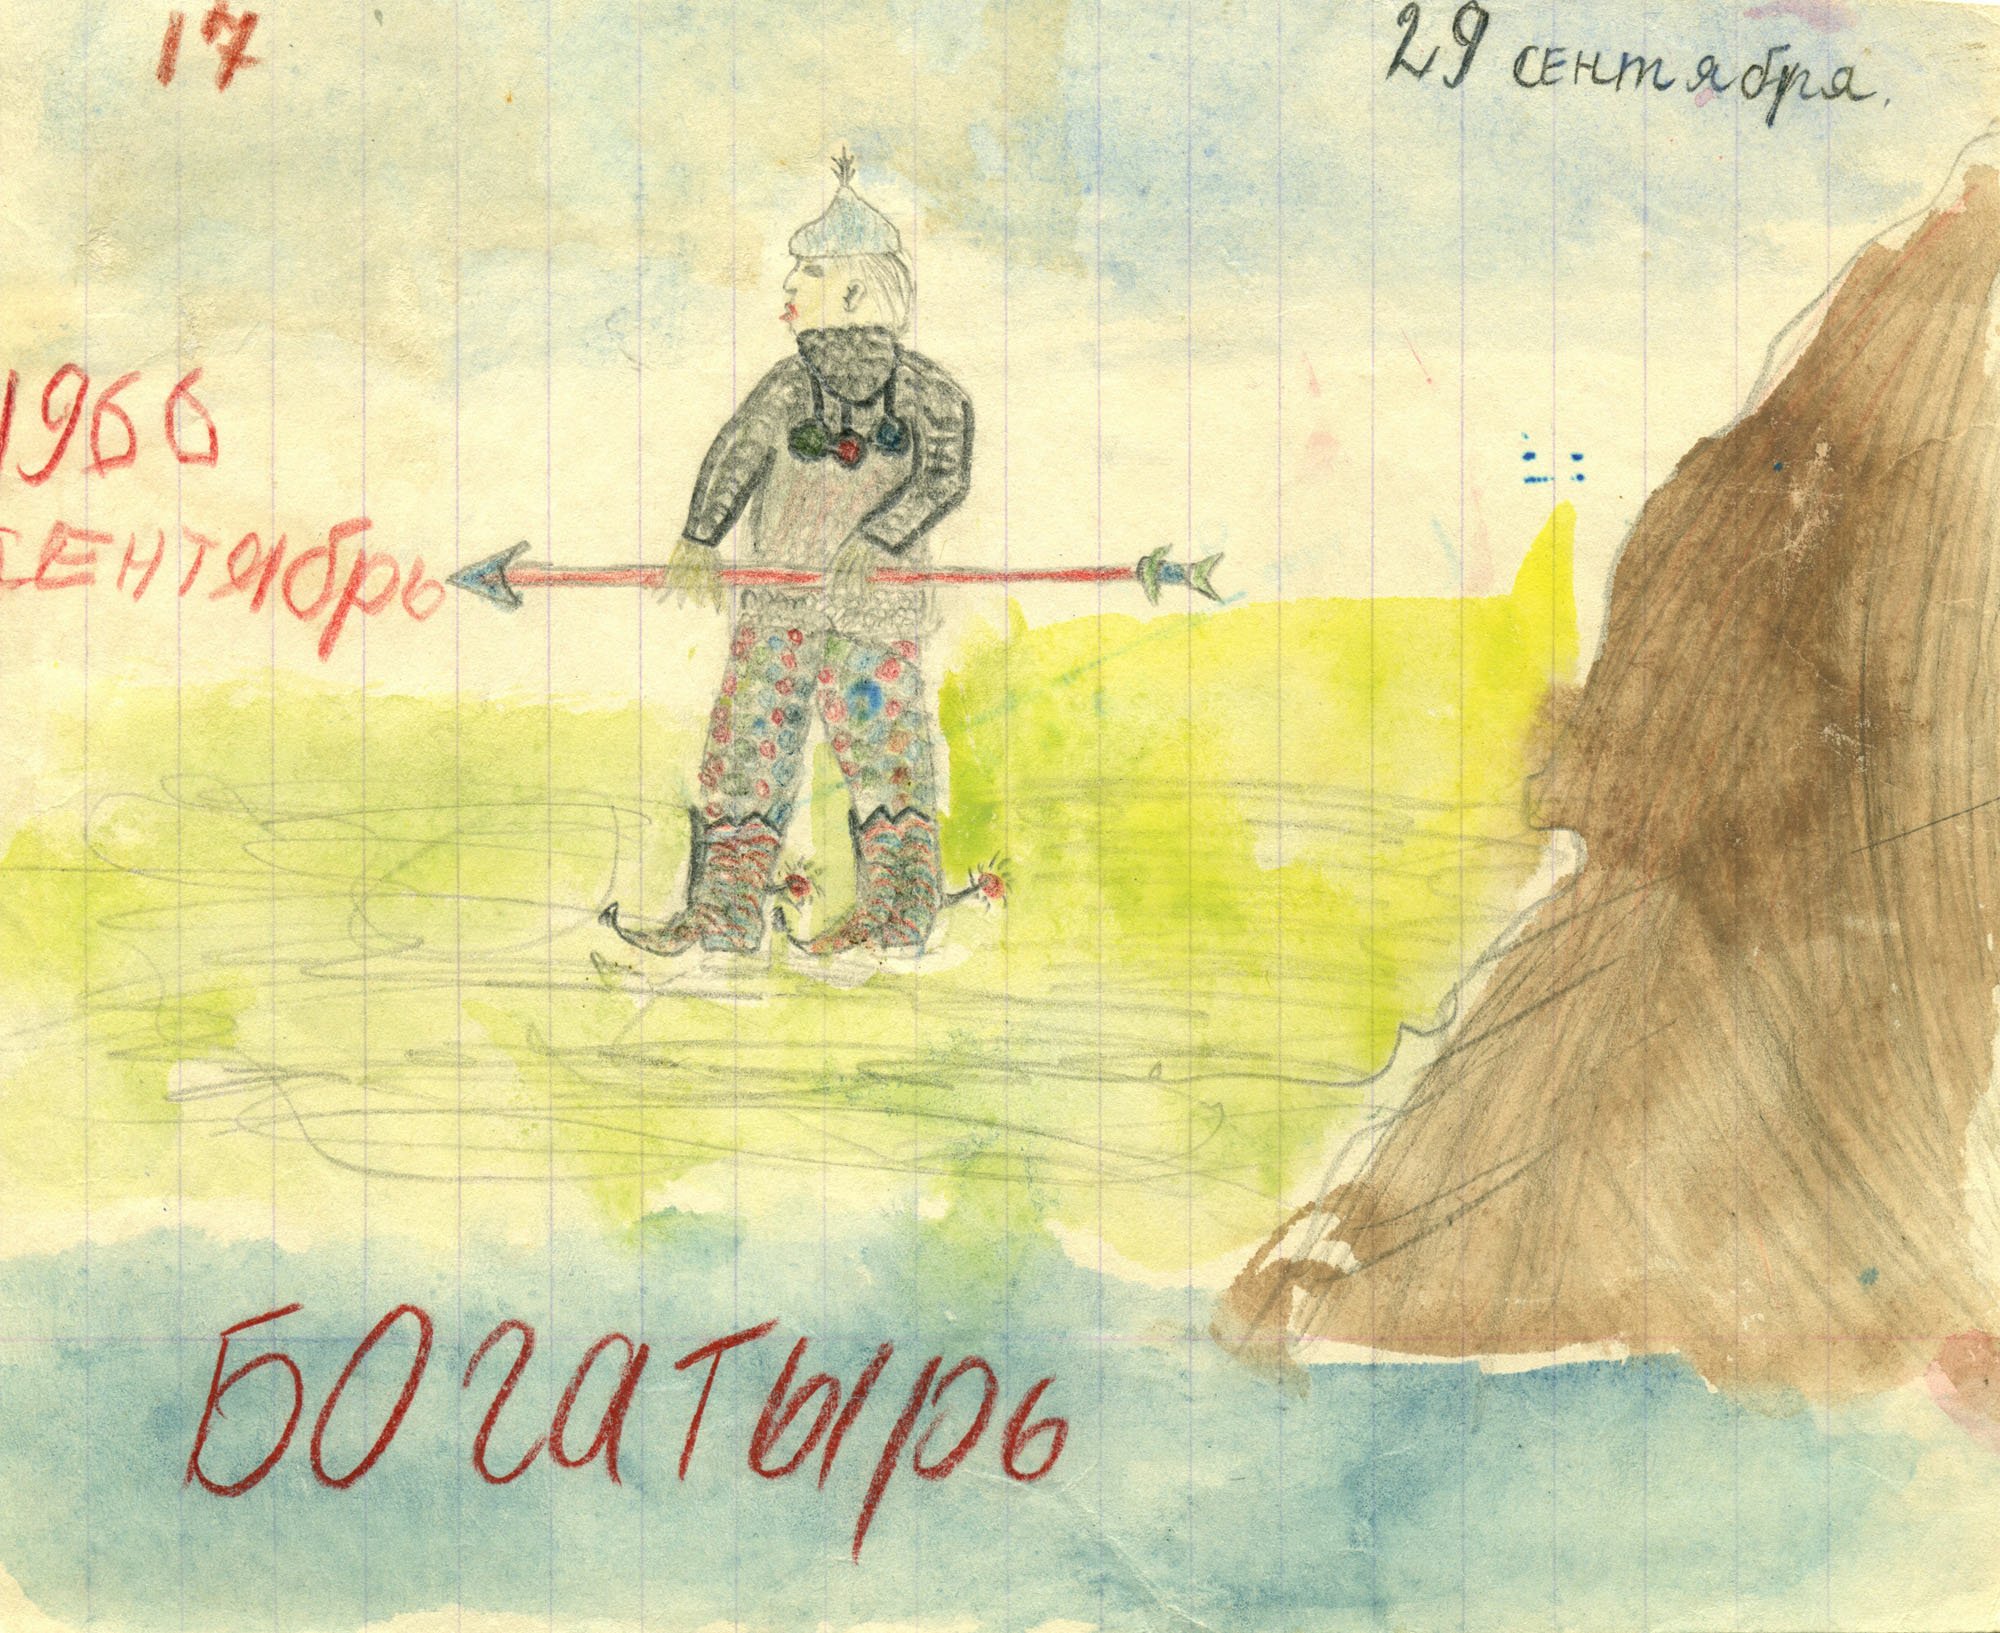 17
29 сентября.
1966
сентябрь
Богатырь